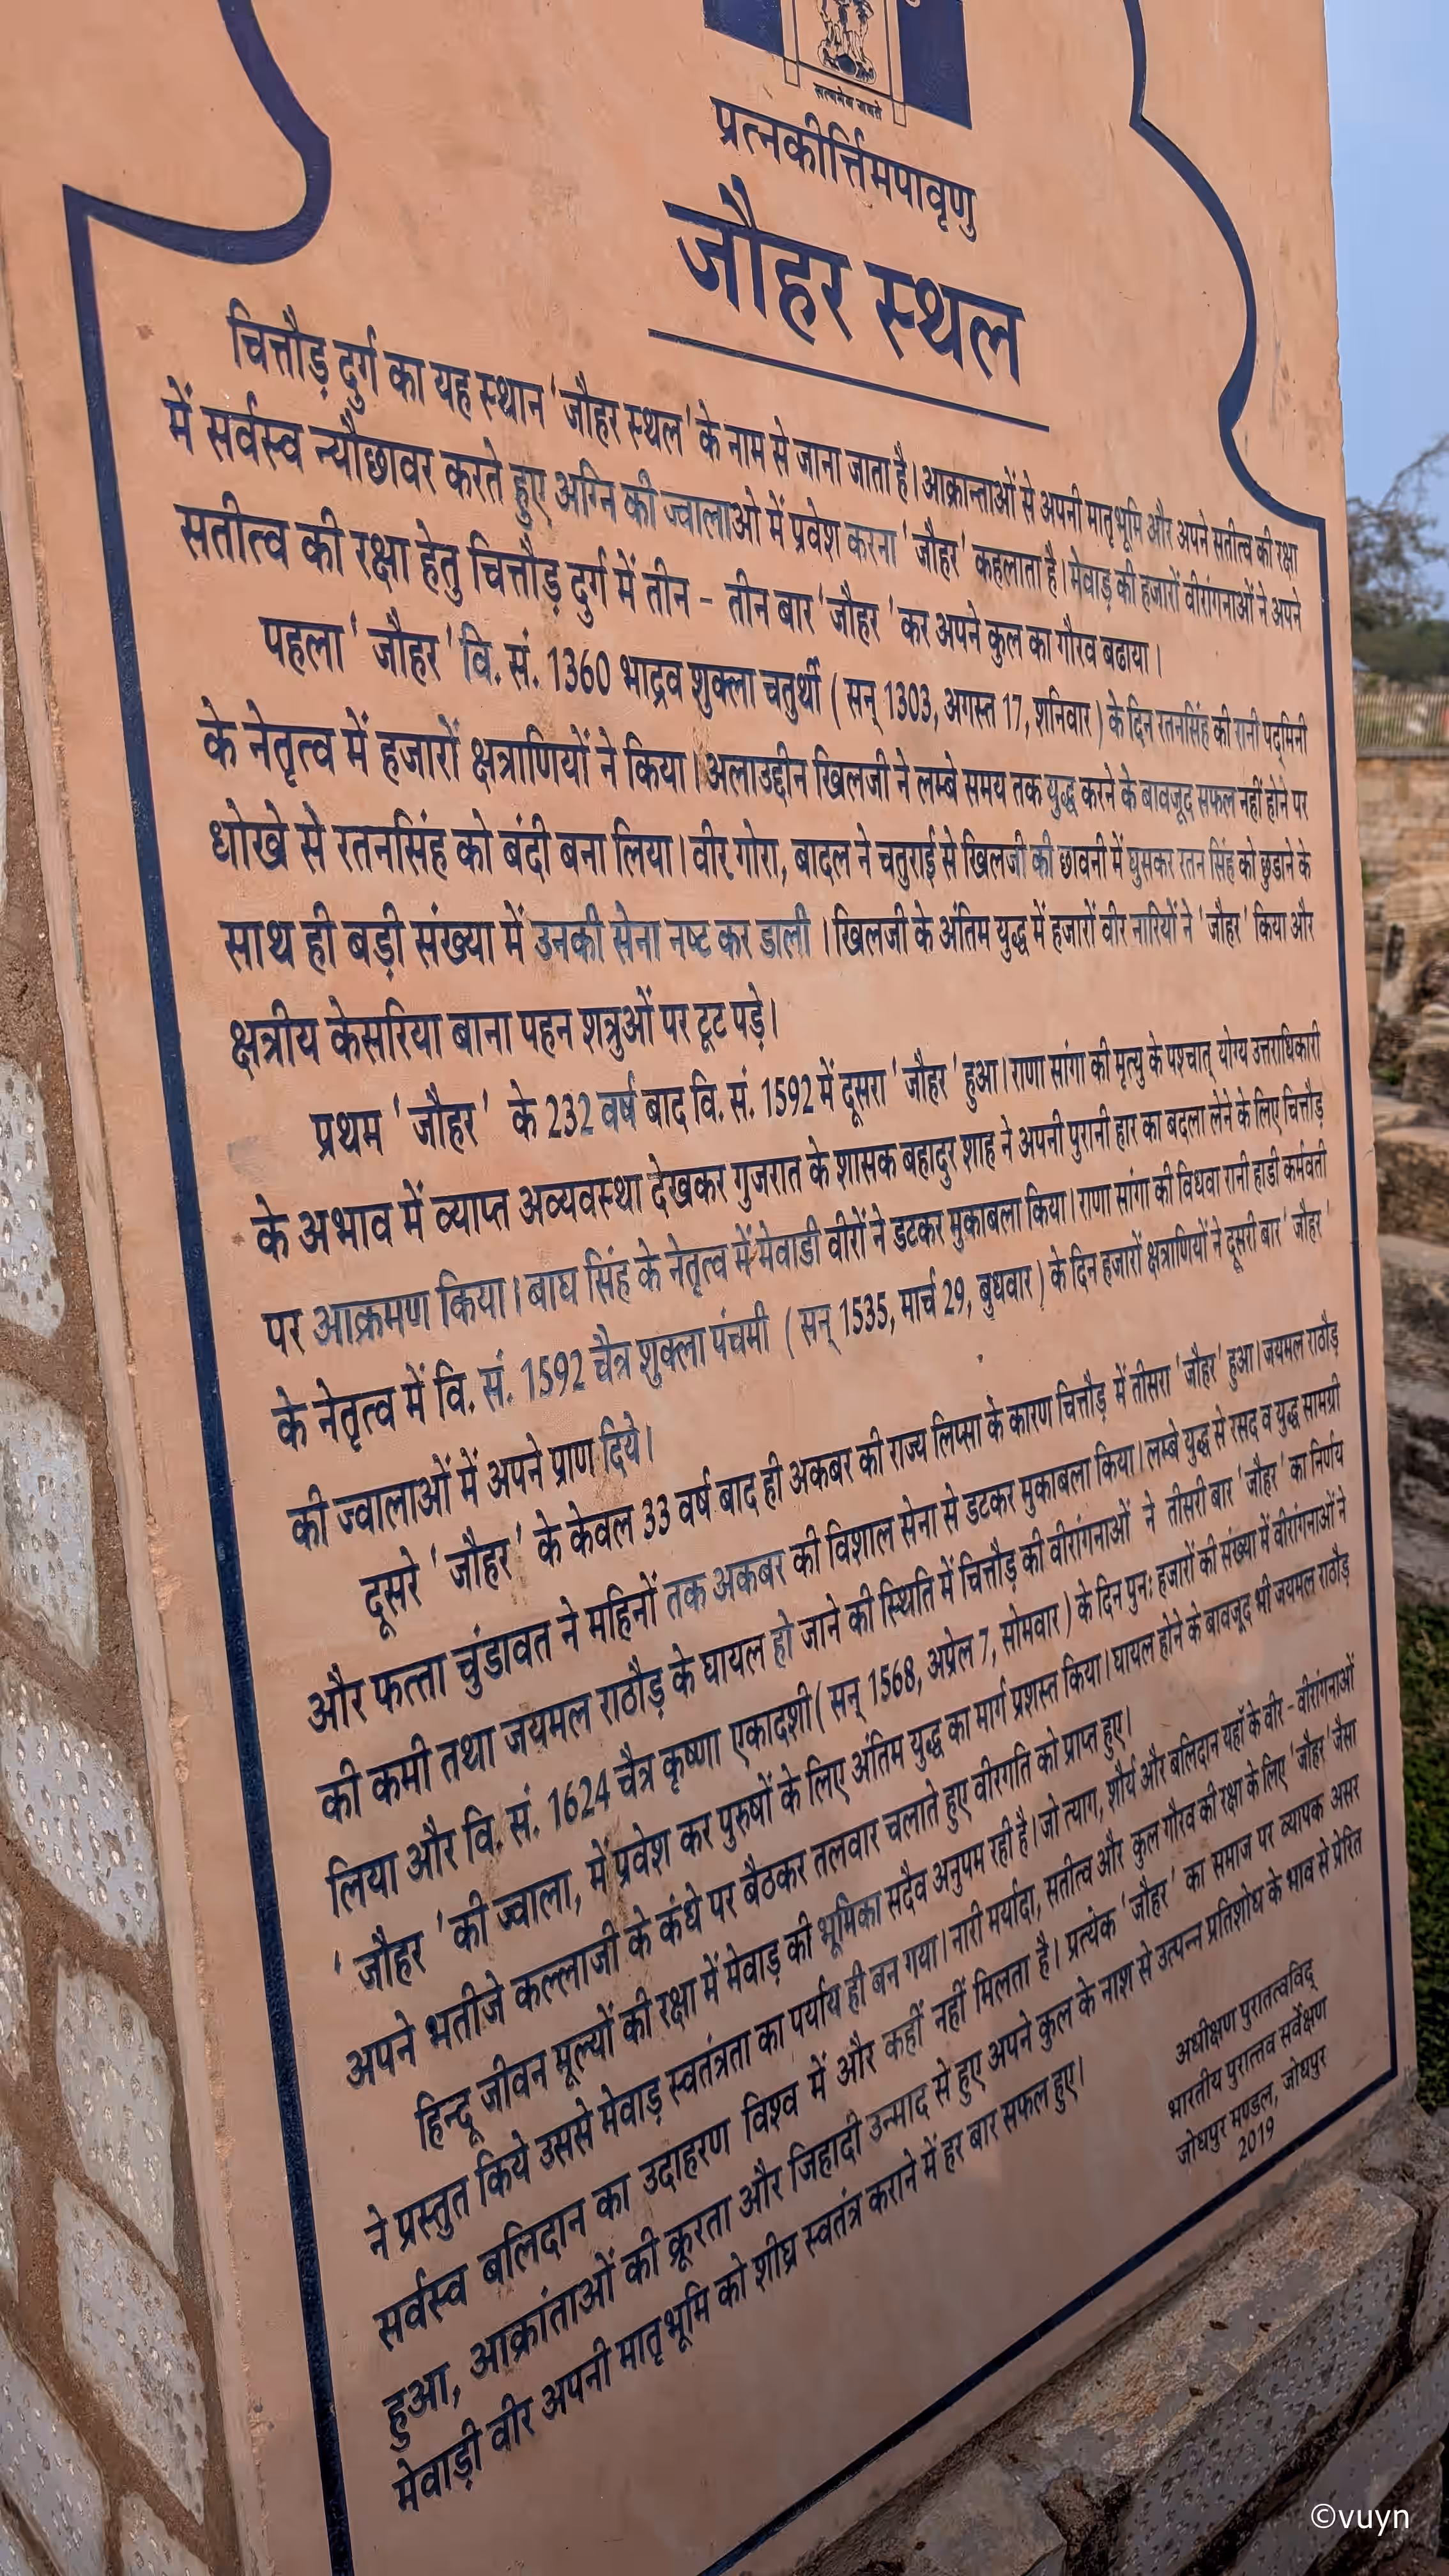 सत्यमेव जयते
प्रत्नकीर्त्तिमपावृणु
जौहर स्थल
चित्तौड़ दुर्ग का यह स्थान ' जौहर स्थल ' के नाम से जाना जाता है। आक्रान्ताओं से अपनी मातृभूमि और अपने सतीत्व की रक्षा
में सर्वस्व न्यौछावर करते हुए अग्नि की ज्वालाओ में प्रवेश करना ' जौहर ' कहलाता है। मेवाड़ की हजारों वीरांगनाओं ने अपने
सतीत्व की रक्षा हेतु चित्तौड़ दुर्ग में तीन - तीन बार ' जौहर ' कर अपने कुल का गौरव बढाया।
पहला ' जौहर ' वि. सं. 1360 भाद्रव शुक्ला चतुर्थी ( सन् 1303, अगस्त 17, शनिवार ) के दिन रतनसिंह की रानी पद्मिनी
के नेतृत्व में हजारों क्षत्राणियों ने किया। अलाउद्दीन खिलजी ने लम्बे समय तक युद्ध करने के बावजूद सफल नहीं होने पर
धोखे से रतनसिंह को बंदी बना लिया। वीर गोरा, बादल ने चतुराई से खिलजी की छावनी में घुसकर रतन सिंह को छुडाने के
साथ ही बड़ी संख्या में उनकी सेना नष्ट कर डाली । खिलजी के अंतिम युद्ध में हजारों वीर नारियों ने ' जौहर ' किया और
क्षत्रीय केसरिया बाना पहन शत्रुओं पर टूट पड़े।
प्रथम ' जौहर ' के 232 वर्ष बाद वि. सं. 1592 में दूसरा ' जौहर ' हुआ। राणा सांगा की मृत्यु के पश्चात् योग्य उत्तराधिकारी
के अभाव में व्याप्त अव्यवस्था देखकर गुजरात के शासक बहादुर शाह ने अपनी पुरानी हार का बदला लेने के लिए चित्तौड़
पर आक्रमण किया। बाघ सिंह के नेतृत्व में मेवाडी वीरों ने डटकर मुकाबला किया। राणा सांगा की विधवा रानी हाडी कर्मवती
के नेतृत्व में वि. सं. 1592 चैत्र शुक्ला पंचमी ( सन् 1535, मार्च 29, बुधवार ) के दिन हजारों क्षत्राणियों ने दूसरी बार ' जौहर '
की ज्वालाओं में अपने प्राण दिये।
दूसरे ' जौहर ' के केवल 33 वर्ष बाद ही अकबर की राज्य लिप्सा के कारण चित्तौड़ में तीसरा ' जौहर ' हुआ। जयमल राठौड़
और फत्ता चुंडावत ने महिनों तक अकबर की विशाल सेना से डटकर मुकाबला किया। लम्बे युद्ध से रसद व युद्ध सामग्री
की कमी तथा जयमल राठौड़ के घायल हो जाने की स्थिति में चित्तौड़ की वीरांगनाओं ने तीसरी बार ' जौहर ' का निर्णय
लिया और वि. सं. 1624 चैत्र कृष्णा एकादशी ( सन् 1568, अप्रेल 7, सोमवार ) के दिन पुनः हजारों की संख्या में वीरांगनाओं ने
' जौहर ' की ज्वाला, में प्रवेश कर पुरुषों के लिए अंतिम युद्ध का मार्ग प्रशस्त किया। घायल होने के बावजूद भी जयमल राठौड़
अपने भतीजे कल्लाजी के कंधे पर बैठकर तलवार चलाते हुए वीरगति को प्राप्त हुए।
हिन्दू जीवन मूल्यों की रक्षा में मेवाड़ की भूमिका सदैव अनुपम रही है। जो त्याग, शौर्य और बलिदान यहाँ के वीर - वीरांगनाओं
ने प्रस्तुत किये उससे मेवाड़ स्वतंत्रता का पर्याय ही बन गया। नारी मर्यादा, सतीत्व और कुल गौरव की रक्षा के लिए ' जौहर ' जैसा
सर्वस्व बलिदान का उदाहरण विश्व में और कहीं नहीं मिलता है। प्रत्येक ' जौहर ' का समाज पर व्यापक असर
हुआ, आक्रांताओं की क्रूरता और जिहादी उन्माद से हुए अपने कुल के नाश से उत्पन्न प्रतिशोध के भाव से प्रेरित
मेवाड़ी वीर अपनी मातृभूमि को शीघ्र स्वतंत्र कराने में हर बार सफल हुए।
अधीक्षण पुरातत्वविद्
भारतीय पुरातत्व सर्वेक्षण
जोधपुर मण्डल, जोधपुर
2019
©vuyn